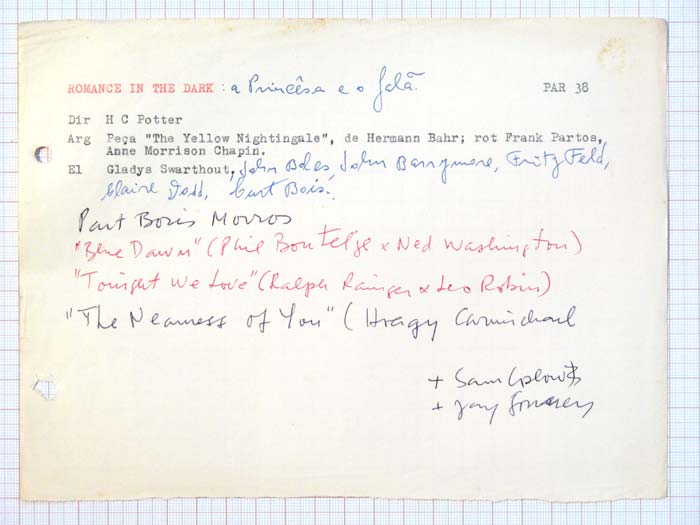 ROMANCE IN THE DARK : a Princêsa e o Galã. PAR 38
Dir H C Potter
Arg Peça "The Yellow Nightingale", de Hermann Bahr; rot Frank Partos,
Anne Morrison Chapin.
El Gladys Swarthout, John Boles, John Barrymore, Fritz Feld,
Claire Dodd, Curt Bois.
Part Boris Morros
"Blue Dawn" (Phil Boutelje x Ned Washington)
"Tonight We Love" (Ralph Rainger x Leo Robin)
"The Nearness of You" (Hoagy Carmichael
+ Sam Coslow
+ Jay Gorney